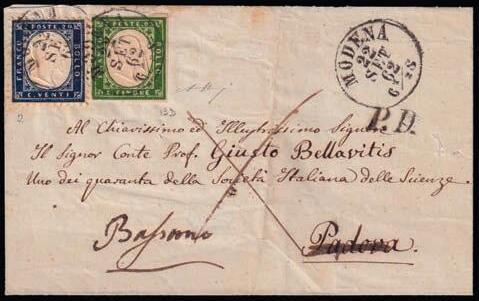 FRANCO POSTE 20 BOLLO C. VENTI
FRANCO POSTE BOLLO C. CINQUE
MODENA 22 SET 62 9 S
P.D.
Al Chiarissimo ed Illustrissimo Signor
Il Signor Conte Prof. Giusto Bellavitis
Uno dei quaranta della Società Italiana delle Scienze.
Bassano
Padova